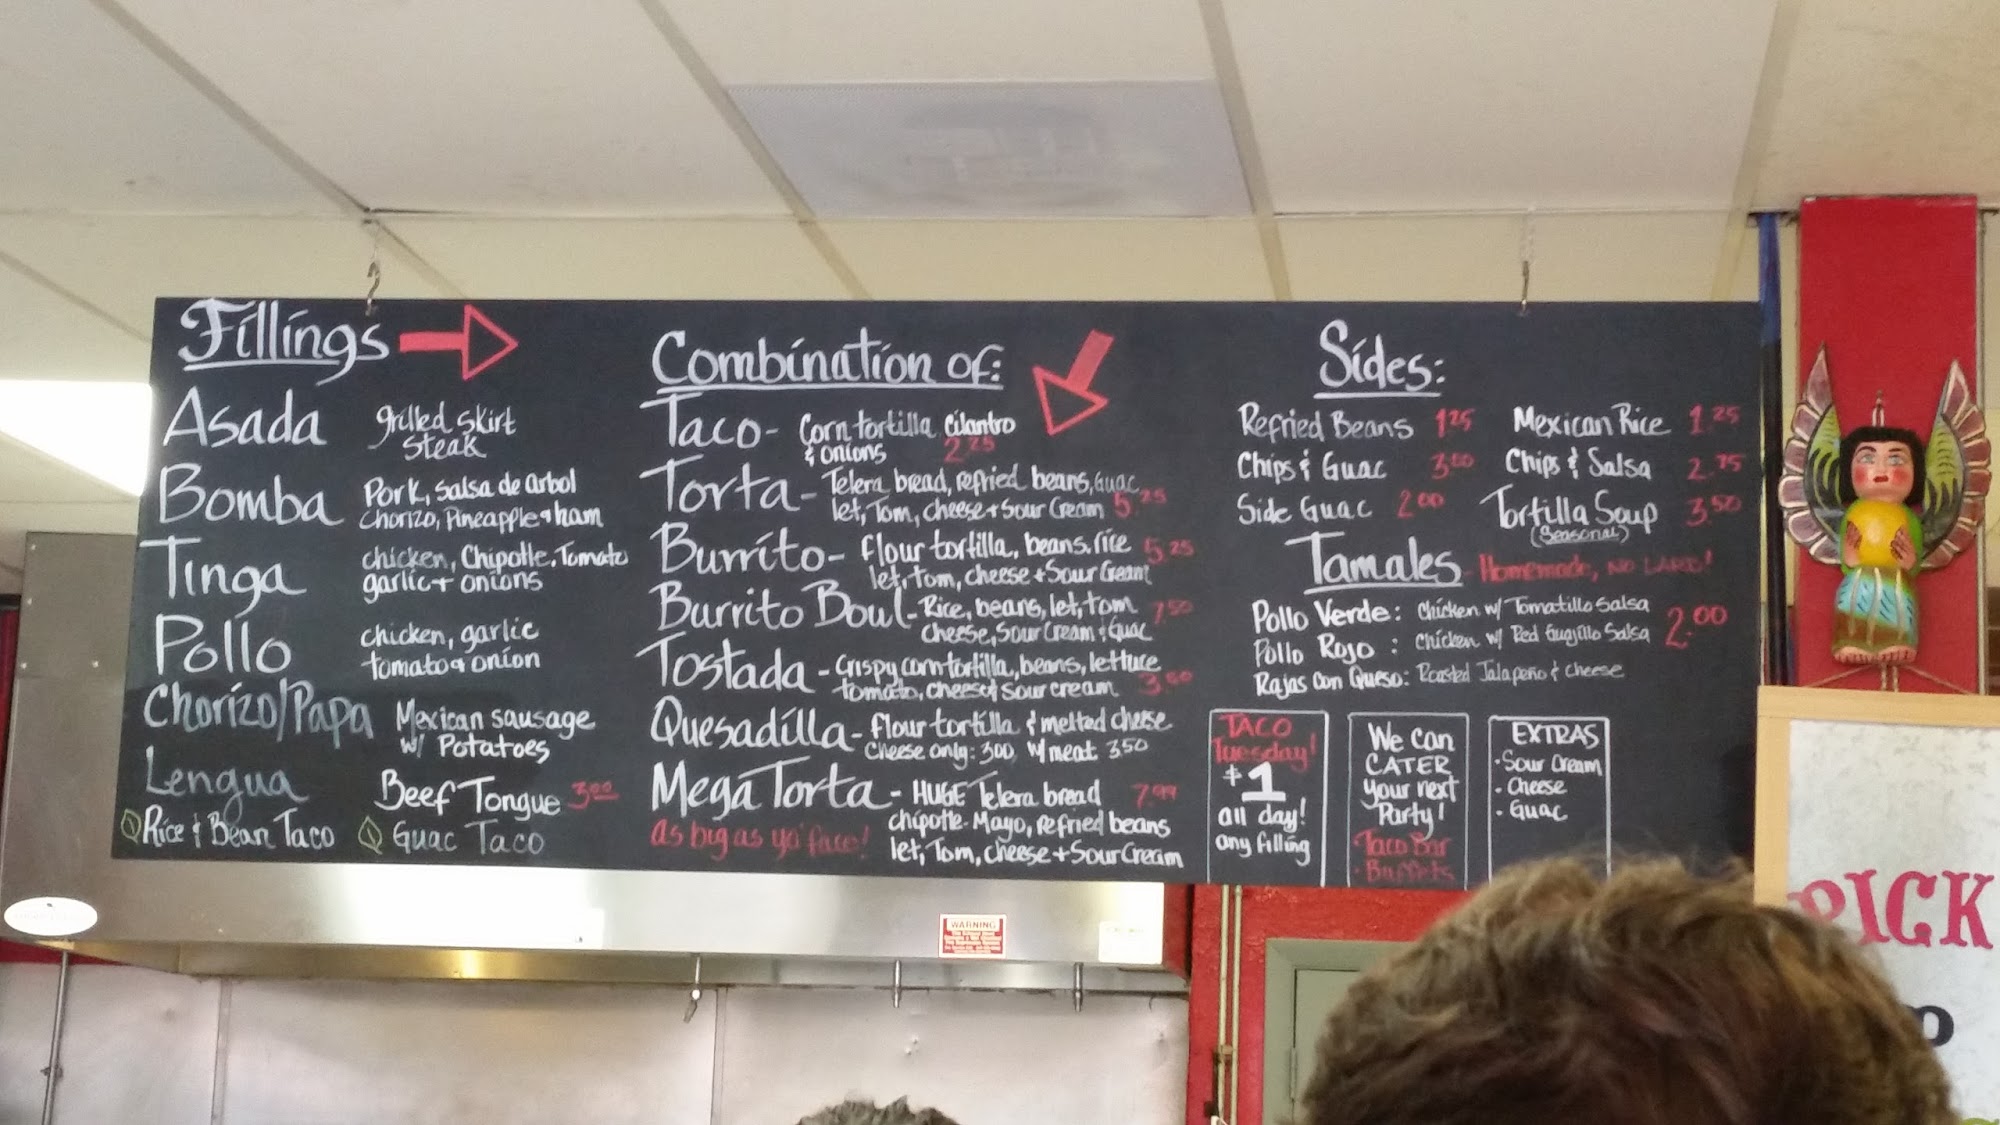 Fillings
Asada grilled skirt
steak
Bomba Pork, salsa de arbol
chorizo, Pineapple + ham
Tinga chicken, Chipotle, Tomato
garlic + onions
Pollo chicken, garlic
tomato + onion
Chorizo/Papa Mexican sausage
w/ Potatoes
Lengua Beef Tongue 3.00
Rice & Bean Taco Guac Taco
Combination of:
Taco - Corn tortilla cilantro
& onions 2.25
Torta - Telera bread, refried beans, Guac
let, Tom, cheese + Sour Cream 5.25
Burrito - flour tortilla, beans, rice 5.25
let, Tom, cheese + Sour Cream
Burrito Boul - Rice, beans, let, tom 7.50
cheese, Sour Cream & Guac
Tostada - Crispy corn tortilla, beans, lettuce
tomato, cheese & sour cream 3.50
Quesadilla - flour tortilla & melted cheese
Cheese only: 3.00, w/ meat 3.50
Mega Torta - HUGE Telera bread 7.99
As big as yo' face! chipotle-Mayo, refried beans
let, Tom, cheese + Sour Cream
Sides:
Refried Beans 1.25 Mexican Rice 1.25
Chips & Guac 3.00 Chips & Salsa 2.75
Side Guac 2.00 Tortilla Soup 3.50
(Seasonal)
Tamales - Homemade, NO LARD!
Pollo Verde: Chicken w/ Tomatillo Salsa
Pollo Rojo: Chicken w/ Red Guajillo Salsa 2.00
Rajas con Queso: Roasted Jalapeño & Cheese
TACO
Tuesday!
$1
all day!
any filling
We can
CATER
your next
Party!
Taco Bar
- Buffets
EXTRAS
- Sour Cream
- Cheese
- Guac
WARNING
PICK